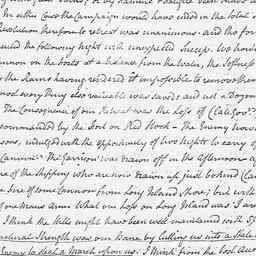 In other Case the Campaign would have ended in the total
Resolution therefore to retreat was unanimous, and tho' for
until the following night with unexpected Success. We
Cannon on the Posts at a distance from the Water, the softness
the Rains having rendered it impossible to remove them
most every thing else valuable was saved; and not a Dozen
The Consequence of our Retreat was the Loss of
commanded by the Fort on Red Hook – the Enemy
sons, indulged with the opportunity of two Nights to carry off
Cannon. The Garrison was drawn off in the Afternoon
of the Shipping who are now drawn up just behind
the fire of some Cannon from Long Island Shore; but with
one mans Arm. What our loss on Long Island was I am
I think the Hills might have been well maintained with
natural Strength was our Bane by lulling us into a State
Enemy to steal a March upon us. I think from the